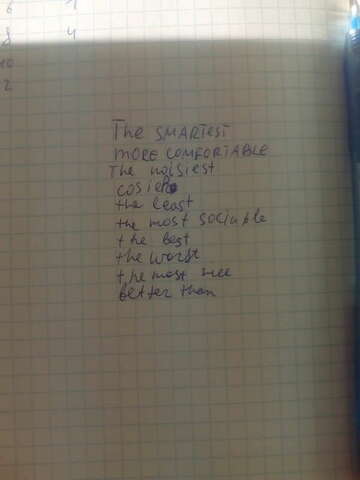 6 1
8 4
10
2
The SMARTEST
MORE COMFORTABLE
The noisiest
cosier
the least
the most sociable
the best
the worst
the most nice
better than